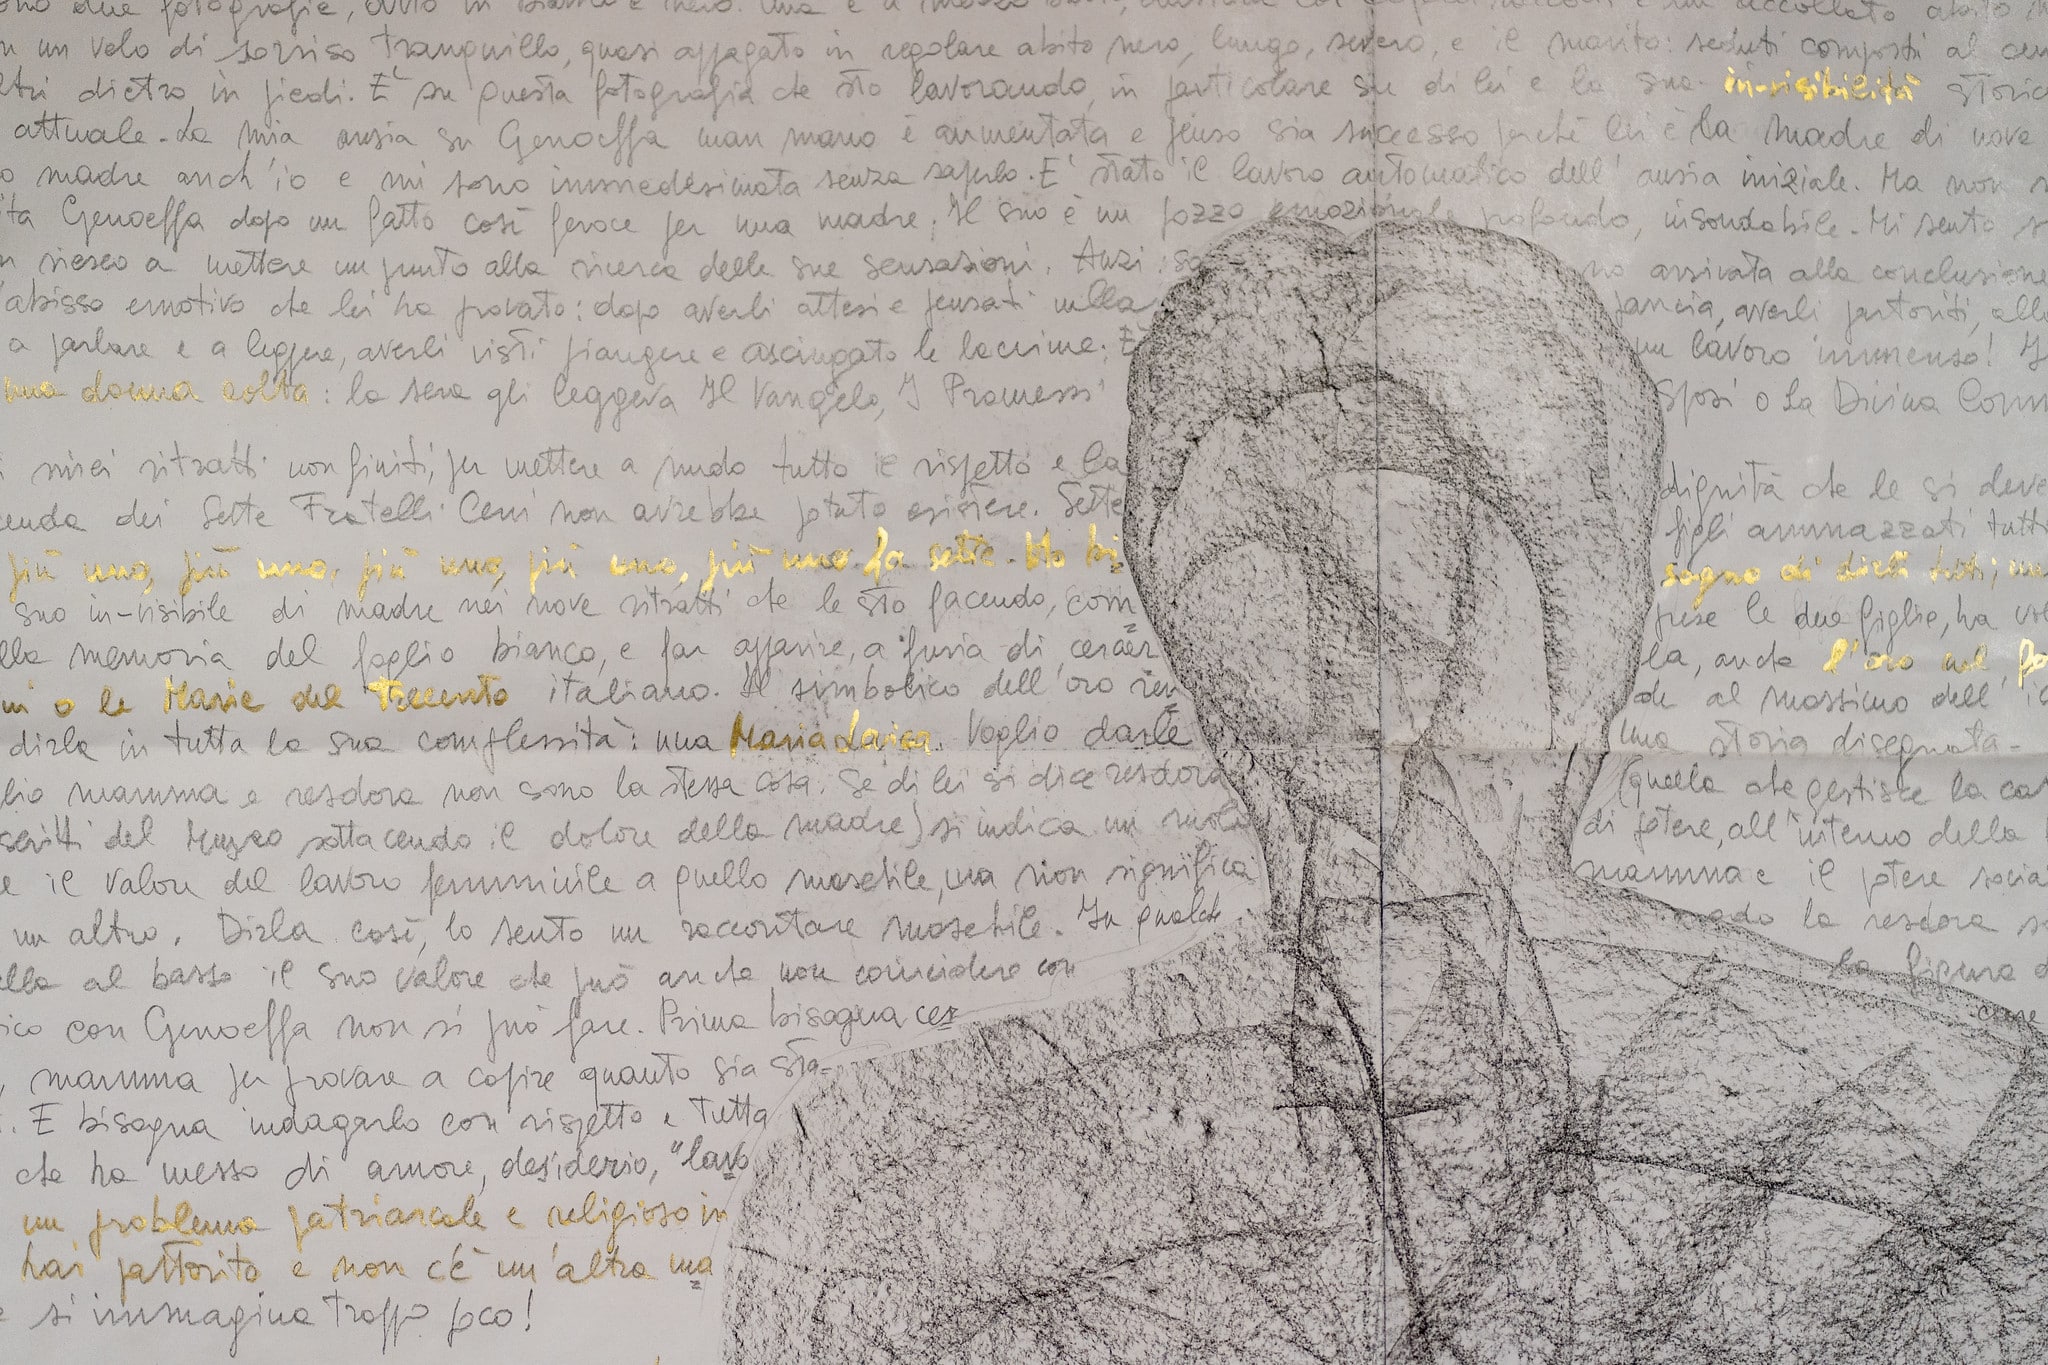 due fotografie, tutto in bianco e nero. una è a mezzo
un velo di sorriso tranquillo, quasi appagato in regolare abito nero, lungo, severo, e il marito: seduti composti al cen
ltri dietro, in piedi. E' su questa fotografia che sto lavorando, in particolare su di lei e la sua in-visibilità storic
attuale. La mia ansia su Genoeffa man mano è aumentata e penso sia successo perché lei è la madre di nove
o madre anch'io e mi sono immedesimata senza saperlo. E' stato il lavoro automatico dell'ansia iniziale. Ma non
ita Genoeffa dopo un fatto così feroce per una madre. Il suo è un pozzo emozionale profondo, insondabile. Mi sento
n riesco a mettere un punto alla ricerca delle sue sensazioni. Anzi: so no arrivata alla conclusione
'abisso emotivo che lei ha provato: dopo averli attesi e pensati nella pancia, averli partoriti, alle
a parlare e a leggere, averli visti piangere e asciugato le lacrime. E' un lavoro immenso!
una donna colta: la sera gli leggeva Il Vangelo, I Promessi Sposi o La Divina Comm
i miei ritratti non finiti, per mettere a nudo tutto il rispetto e la dignità che le si deve
cenda dei Sette Fratelli Cervi non avrebbe potuto esistere. Sette figli ammazzati tutti
più uno, più uno, più uno, più uno, più uno fa sette. Ho bi sogno di dirli tutti;
suo in-visibile di madre nei nove ritratti che le sto facendo, com prese le due figlie, ha
lla memoria del foglio bianco, e far apparire, a furia di cercar la, anche l'oro nel
ni o le Marie del Trecento italiano. Il simbolico dell'oro ren de al massimo dell'
dirla in tutta la sua complessità: una Maria Laica. Voglio darle una storia disegnata.
lio mamma e resdora non sono la stessa cosa. Se di lei si dice resdora (quella che gestisce la cas
scritti del Museo sottacendo il dolore della madre) si indica un ruolo di potere, all'interno della
e il valore del lavoro femminile a quello maschile, ma non significa mamma e il potere social
un altro. Dirla così, lo sento un raccontare maschile. In qualche modo la resdora
ella al basso il suo valore che può anche non coincidere con la figura d
ico con Genoeffa non si può fare. Prima bisogna cer care
, mamma per provare a capire quanto sia sta-
. E bisogna indagarlo con rispetto e tutta
che ha messo di amore, desiderio, "lavo
un problema patriarcale e religioso in
hai partorito e non c'è un'altra ma
e si immagina troppo poco!